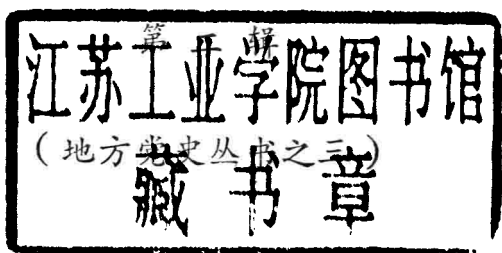 第一辑
江苏工业学院图书馆
（地方党史丛书之三）
藏书章